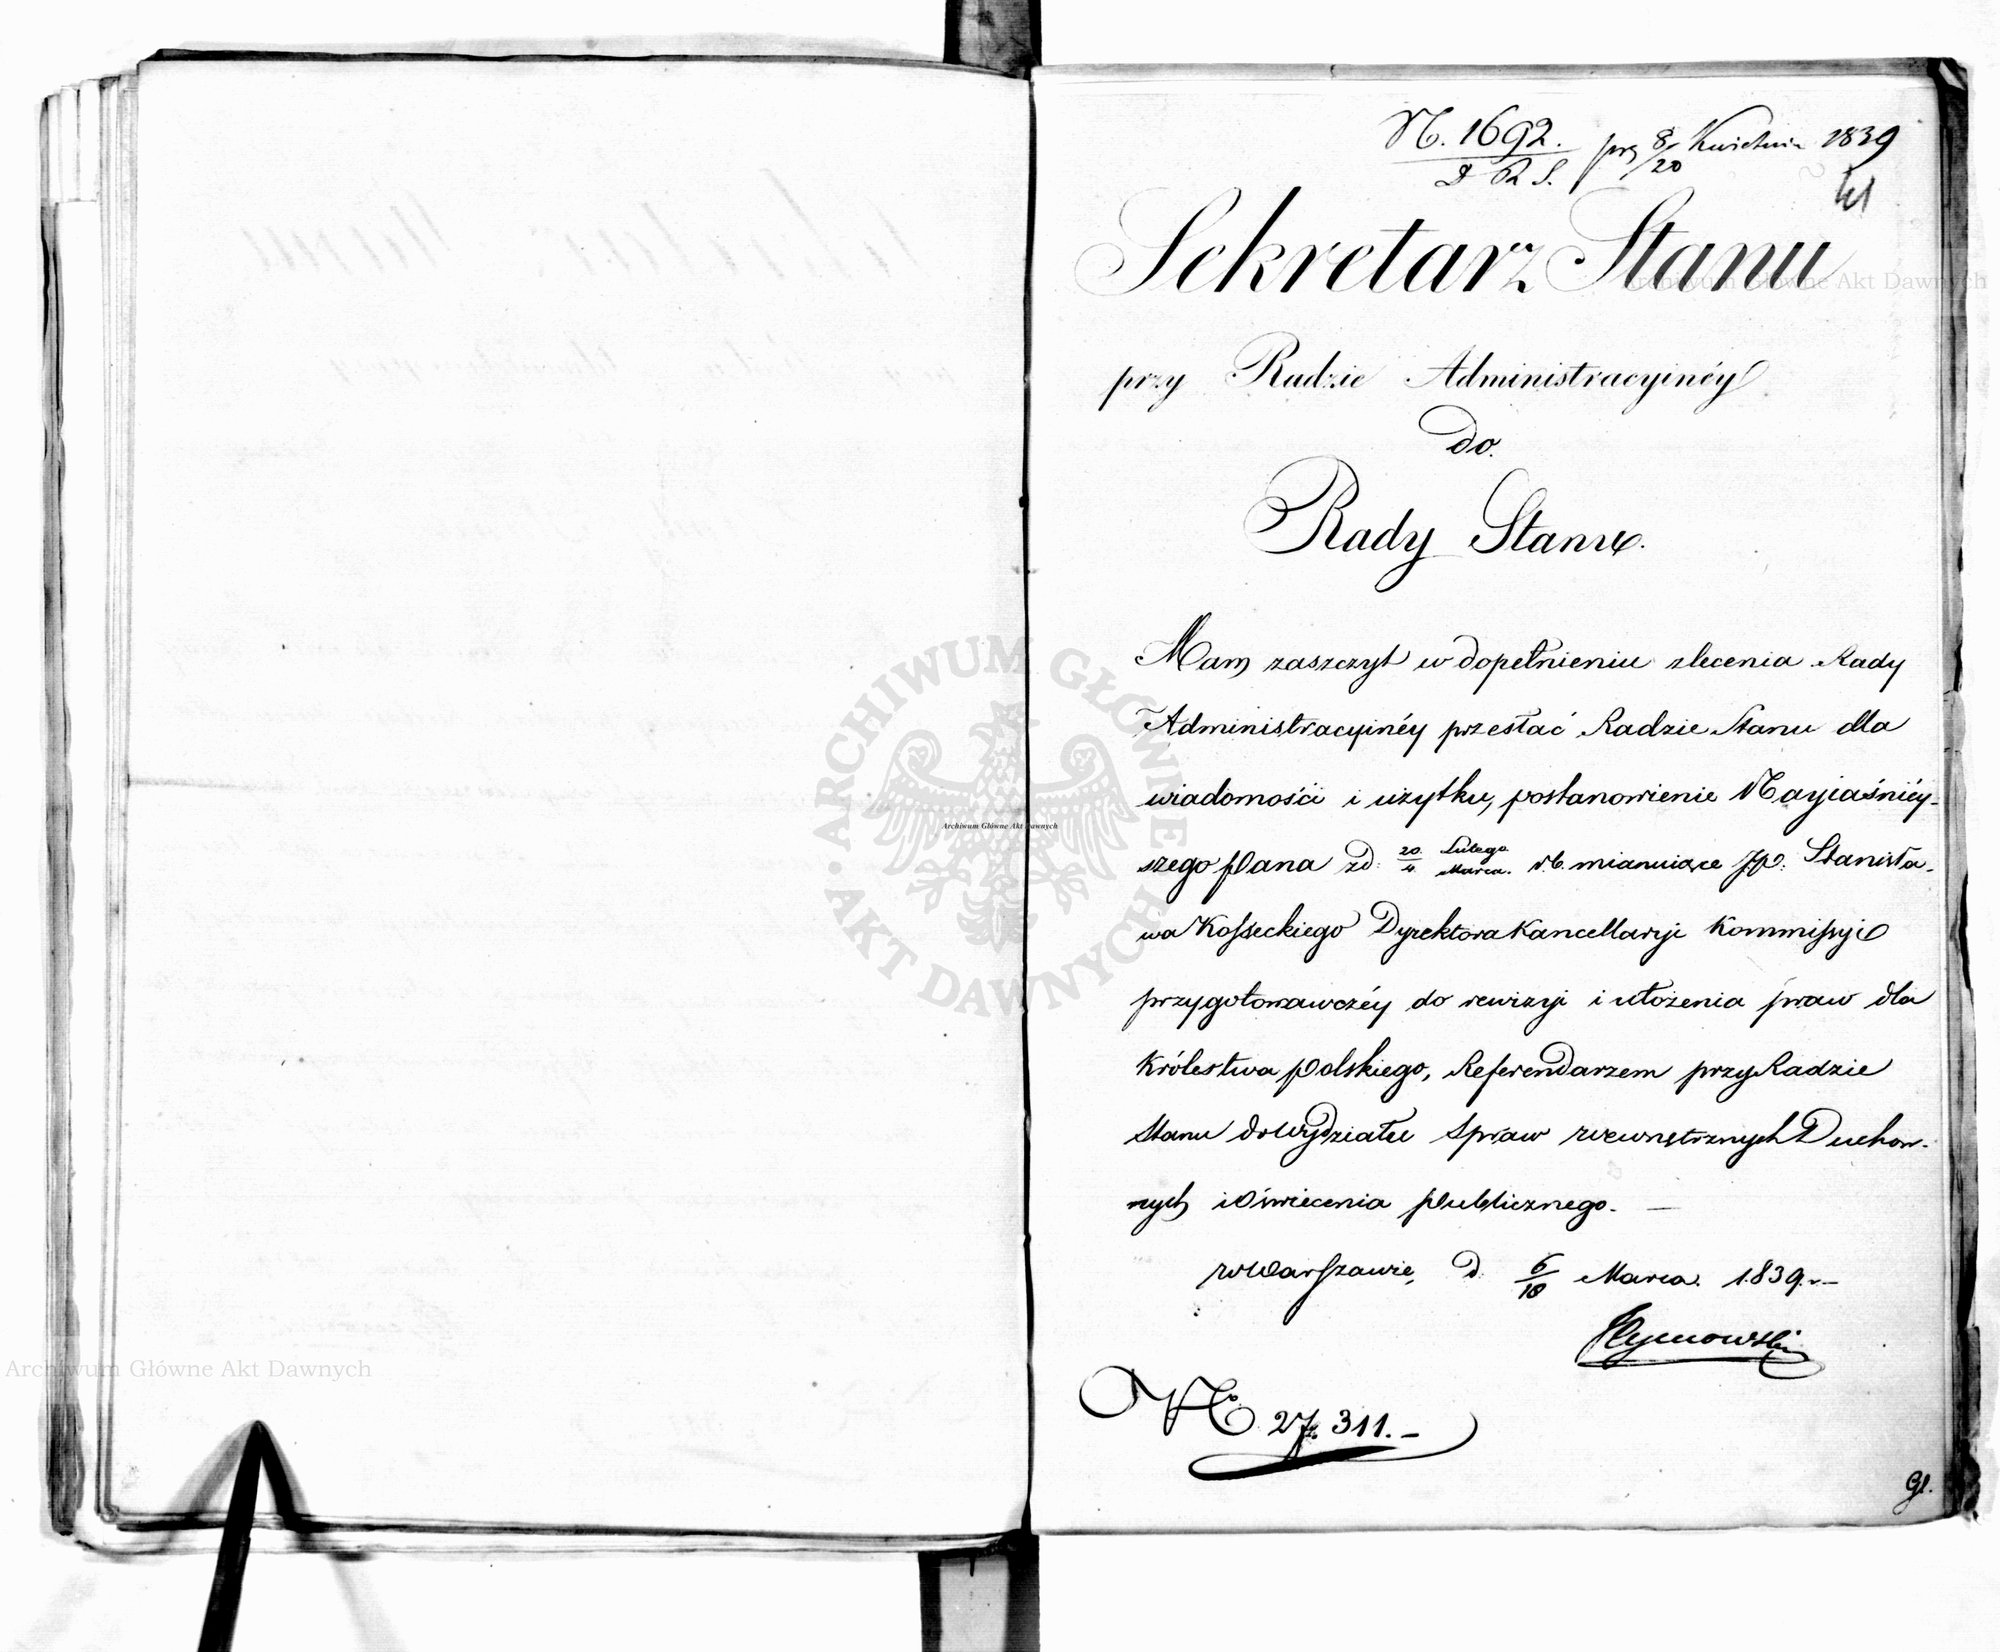 N. 1692. prz 8/20 Kwietnia 1839
D R S.
Sekretarz Stanu
przy Radzie Administracyinéy
do
Rady Stanu.
Mam zaszczyt w dopełnieniu zlecenia Rady
Administracyinéy przesłać Radzie Stanu dla
wiadomości i użytku, postanowienie Nayiaśniéy-
szego Pana z d: 20 Lutego / 4 Marca r. b. mianuiące JP: Stanisła-
wa Kosseckiego Dyrektora Kancellaryi Kommissyi
przygotowawczéy do rewizyi i ułożenia praw dla
Królestwa Polskiego, Referendarzem przy Radzie
Stanu do Wydziału Spraw wewnętrznych Duchow-
nych i Oświecenia Publicznego. —
w Warszawie, d. 6/18 Marca. 1839 r. —
Tymowski
No. 27,311. —
Gl.
Archiwum Główne Akt Dawnych
ARCHIWUM GŁÓWNE AKT DAWNYCH
Archiwum Główne Akt Dawnych
Archiwum Główne Akt Dawnych